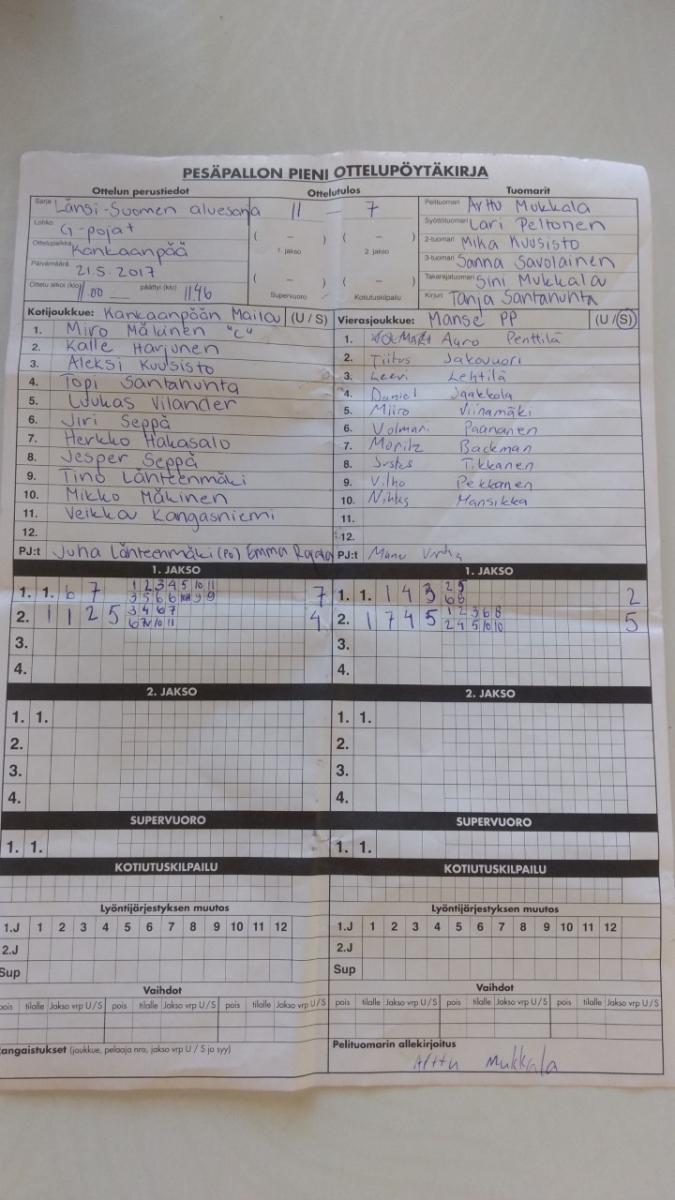 PESÄPALLON PIENI OTTELUPÖYTÄKIRJA
Ottelun perustiedot Ottelutulos Tuomarit
Sarja Länsi-Suomen aluesarja 11 – 7 Pelituomari Arttu Mukkala
Lohko G-pojat Syöttötuomari Lari Peltonen
Ottelupaikka Kankaanpää ( – ) ( – ) 2-tuomari Mika Kuusisto
1. jakso 2. jakso
Päivämäärä 21.5.2017 3-tuomari Sanna Savolainen
( – ) ( – ) Takarajatuomari Sini Mukkala
Ottelu alkoi (klo) 11.00 päättyi (klo) 11.46 Supervuoro Kotiutuskilpailu Kirjuri Tanja Santahuhta
Kotijoukkue: Kankaanpään Maila (U / S) Vierasjoukkue: Manse PP (U / S)
1. Miro Mäkinen "C" 1. Auro Penttilä
2. Kalle Harjunen 2. Tiitus Jakovuori
3. Aleksi Kuusisto 3. Leevi Lehtilä
4. Topi Santahuhta 4. Daniel Jaakkola
5. Luukas Vilander 5. Miiro Viinamäki
6. Jiri Seppä 6. Volmari Paananen
7. Herkko Hakasalo 7. Moritz Backman
8. Jesper Seppä 8. Justus Tikkanen
9. Tino Lähteenmäki 9. Vilho Pekkanen
10. Mikko Mäkinen 10. Niklas Mansikka
11. Veikka Kangasniemi 11.
12. 12.
PJ:t Juha Lähteenmäki (PJ) Emma PJ:t Manu
1. JAKSO 1. JAKSO
1. 1. 6 7 1 2 3 4 5 10 11 7 1. 1. 1 4 3 2 5 2
3 5 6 6 9 9 6 8
2. 1 1 2 5 3 4 6 7 4 2. 1 7 4 5 1 2 3 6 8 5
6 10 11 2 4 5 10 10
3. 3.
4. 4.
2. JAKSO 2. JAKSO
1. 1. 1. 1.
2. 2.
3. 3.
4. 4.
SUPERVUORO SUPERVUORO
1. 1. 1. 1.
KOTIUTUSKILPAILU KOTIUTUSKILPAILU
Lyöntijärjestyksen muutos Lyöntijärjestyksen muutos
1.J 1 2 3 4 5 6 7 8 9 10 11 12 1.J 1 2 3 4 5 6 7 8 9 10 11 12
2.J 2.J
Sup Sup
Vaihdot Vaihdot
pois tilalle Jakso vrp U / S pois tilalle Jakso vrp U / S pois tilalle Jakso vrp U / S pois tilalle Jakso vrp U / S pois tilalle Jakso vrp U / S pois tilalle Jakso vrp U / S
angaistukset (joukkue, pelaaja nro, jakso vrp U / S ja syy) Pelituomarin allekirjoitus
Arttu Mukkala